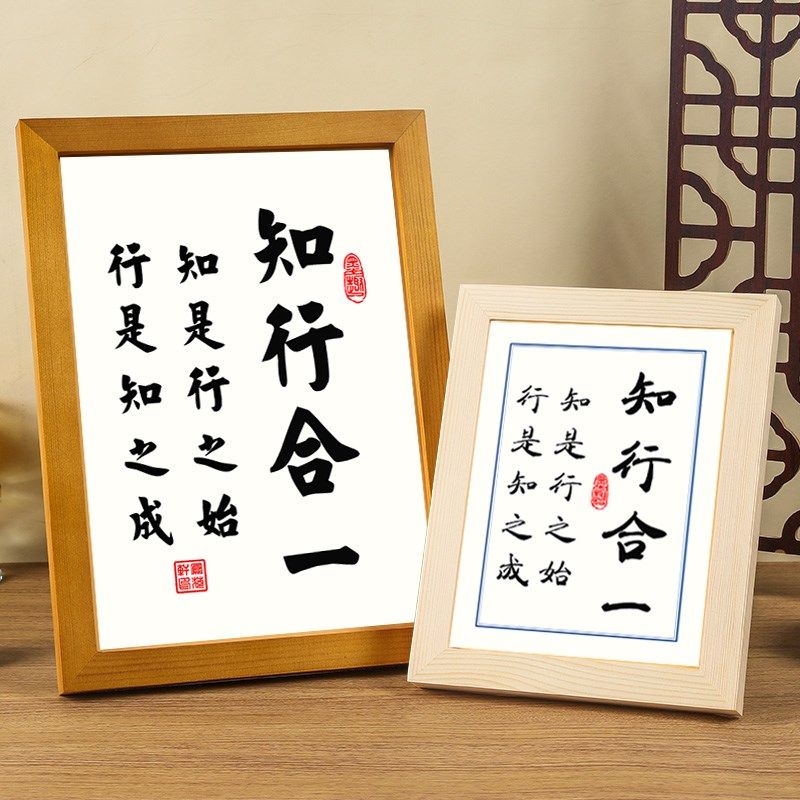 知行合一
知是行之始
行是知之成
知行合一
知是行之始
行是知之成